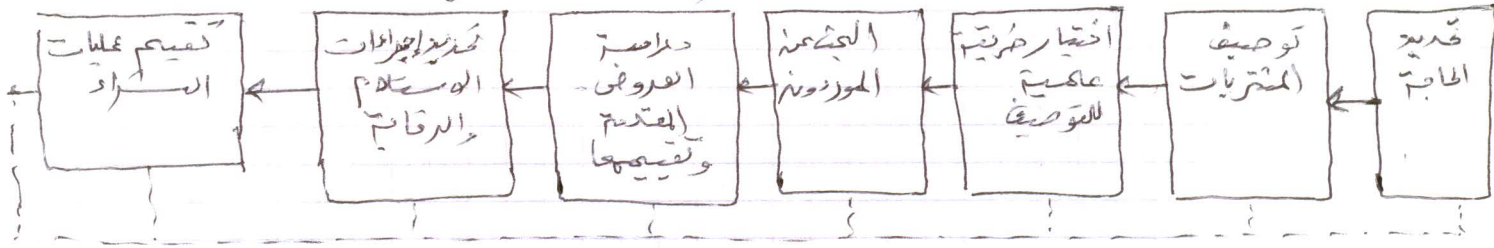 تحديد
الحاجة
توصيف
المشتريات
اختيار طريقة
علمية
للتوصيف
البحث عن
الموردون
دراسة
العروض
المقدمة
وتقييمها
تحديد إجراءات
الاستلام
والرقابة
تقييم عمليات
الشراء